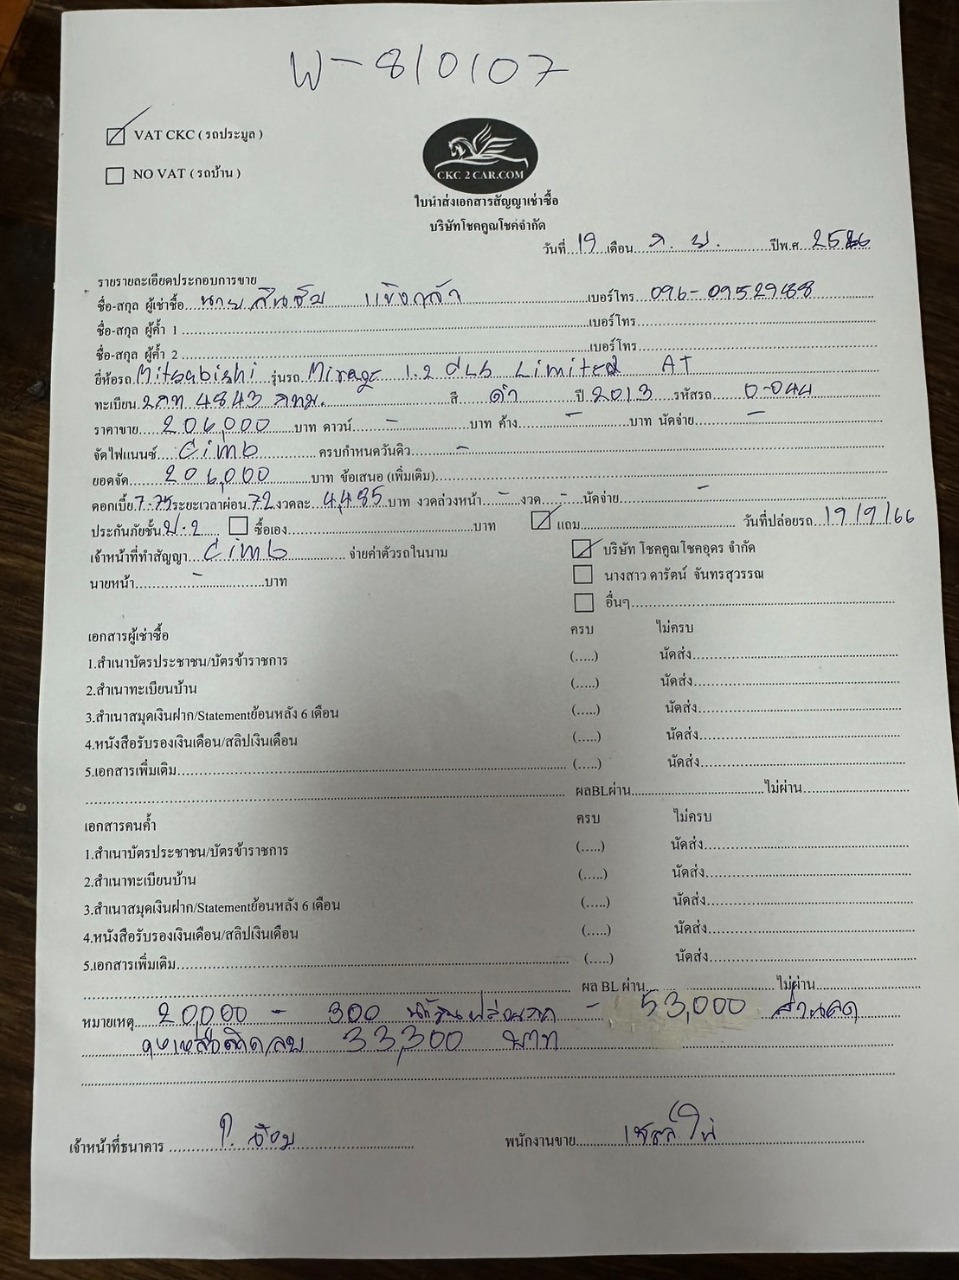 W-810107
☑ VAT CKC ( รถประมูล )
☐ NO VAT ( รถบ้าน )
CKC 2 CAR.COM
ใบนำส่งเอกสารสัญญาเช่าซื้อ
บริษัทโชคคูณโชคจำกัด
วันที่ 19 เดือน ก.ย. ปีพ.ศ. 2566
รายรายละเอียดประกอบการขาย
ชื่อ-สกุล ผู้เช่าซื้อ นาย สินชัย แข็งกล้า เบอร์โทร 096-0952988
ชื่อ-สกุล ผู้ค้ำ 1 เบอร์โทร
ชื่อ-สกุล ผู้ค้ำ 2 เบอร์โทร
ยี่ห้อรถ Mitsubishi รุ่นรถ Mirage 1.2 GLS Limited AT
ทะเบียน 2กท 4843 กทม. สี ดำ ปี 2013 รหัสรถ 0-044
ราคาขาย 206,000 บาท ดาวน์ - บาท ค้าง - บาท นัดจ่าย -
จัดไฟแนนซ์ Cimb ครบกำหนดวันดิว -
ยอดจัด 206,000 บาท ข้อเสนอ (เพิ่มเติม)
ดอกเบี้ย 7.75 ระยะเวลาผ่อน 72 งวดละ 4,485 บาท งวดล่วงหน้า - งวด - นัดจ่าย -
ประกันภัยชั้น ป.2 ☐ ซื้อเอง บาท ☑ แถม วันที่ปล่อยรถ 19/9/66
เจ้าหน้าที่ทำสัญญา Cimb จ่ายค่าตัวรถในนาม ☑ บริษัท โชคคูณโชคอุดร จำกัด
นายหน้า - บาท ☐ นางสาว ดารัตน์ จันทรสุวรรณ
☐ อื่นๆ
เอกสารผู้เช่าซื้อ ครบ ไม่ครบ
1.สำเนาบัตรประชาชน/บัตรข้าราชการ (.....) นัดส่ง
2.สำเนาทะเบียนบ้าน (.....) นัดส่ง
3.สำเนาสมุดเงินฝาก/Statementย้อนหลัง 6 เดือน (.....) นัดส่ง
4.หนังสือรับรองเงินเดือน/สลิปเงินเดือน (.....) นัดส่ง
5.เอกสารเพิ่มเติม (.....) นัดส่ง
ผลBLผ่าน ไม่ผ่าน
เอกสารคนค้ำ ครบ ไม่ครบ
1.สำเนาบัตรประชาชน/บัตรข้าราชการ (.....) นัดส่ง
2.สำเนาทะเบียนบ้าน (.....) นัดส่ง
3.สำเนาสมุดเงินฝาก/Statementย้อนหลัง 6 เดือน (.....) นัดส่ง
4.หนังสือรับรองเงินเดือน/สลิปเงินเดือน (.....) นัดส่ง
5.เอกสารเพิ่มเติม (.....) นัดส่ง
ผล BL ผ่าน ไม่ผ่าน
หมายเหตุ 20,000 - 300 - 53,000 ส่วนลด
คงเหลือติดลบ 33,300 บาท
เจ้าหน้าที่ธนาคาร พนักงานขาย